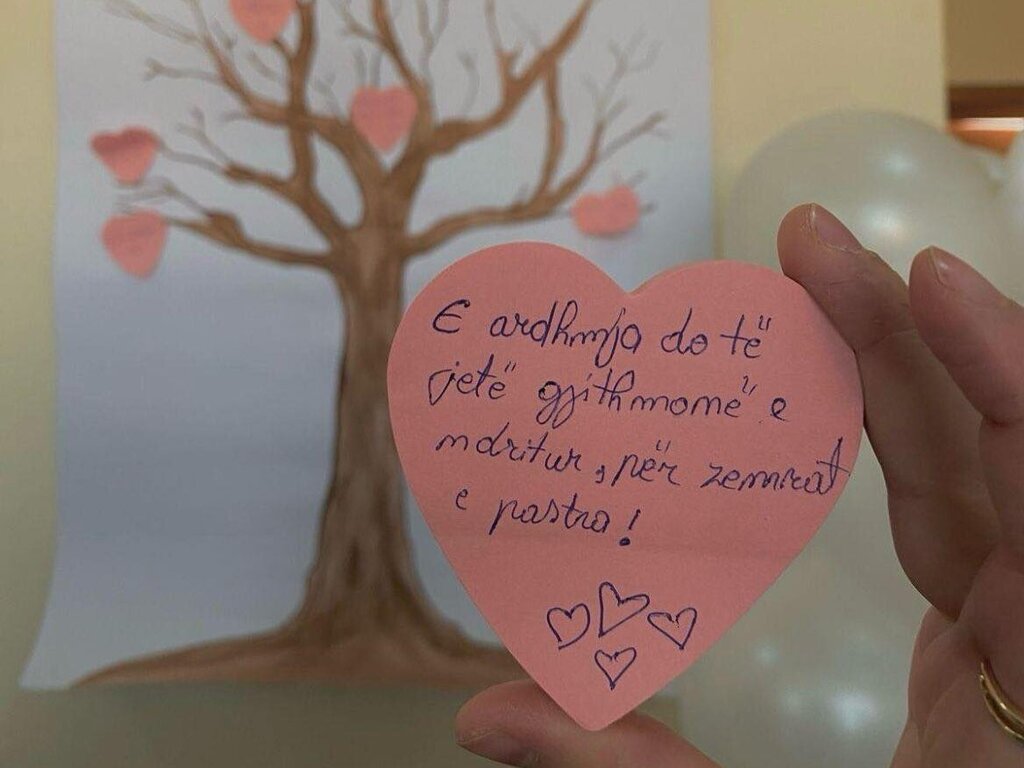 E ardhmja do të
jetë gjithmonë e
ndritur, për zemrat
e pastra!